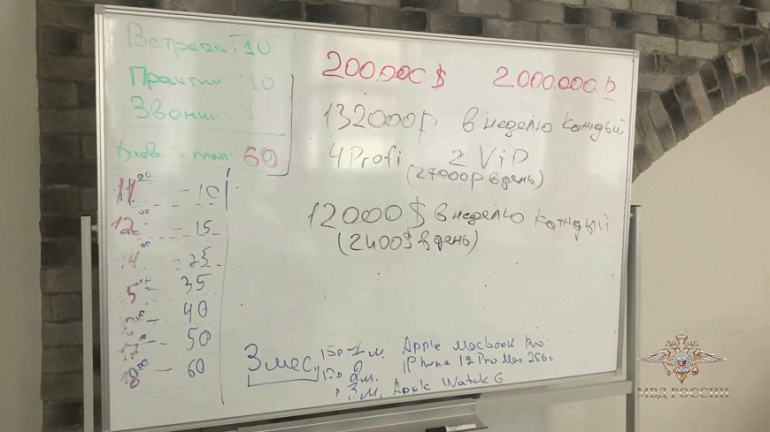 Встреча: 10
Практик : 10
Звонки : 1
план: 60
11 00 - 10
12 00 - 15
4 - 25
5 - 35
- 40
- 50
- 60
200.000 $ 2.000.000 р
132000р в неделю каждый
4 Profi 2 ViP
(27000р в день)
12000$ в неделю каждый
(2400$ в день)
3 мес. 1 м. Apple Macbook Pro
2 м. iPhone 12 Pro Max 256
3 м. Apple Watch 6
МВД РОССИИ